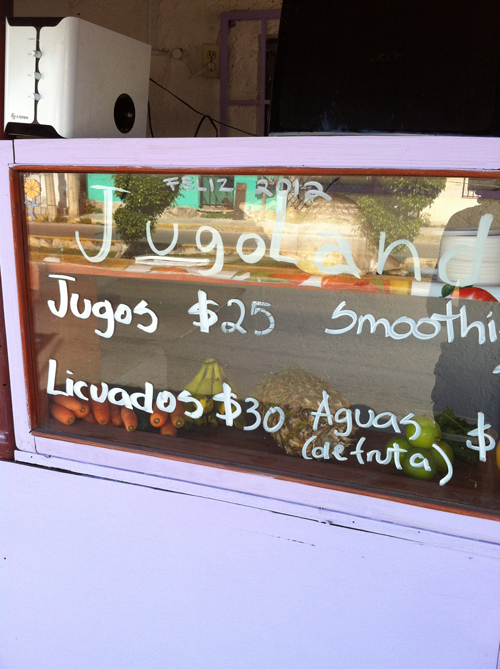 FELIZ 2012
JugoLand
Jugos $25 Smoothi
Licuados $30 Aguas $
(de fruta)